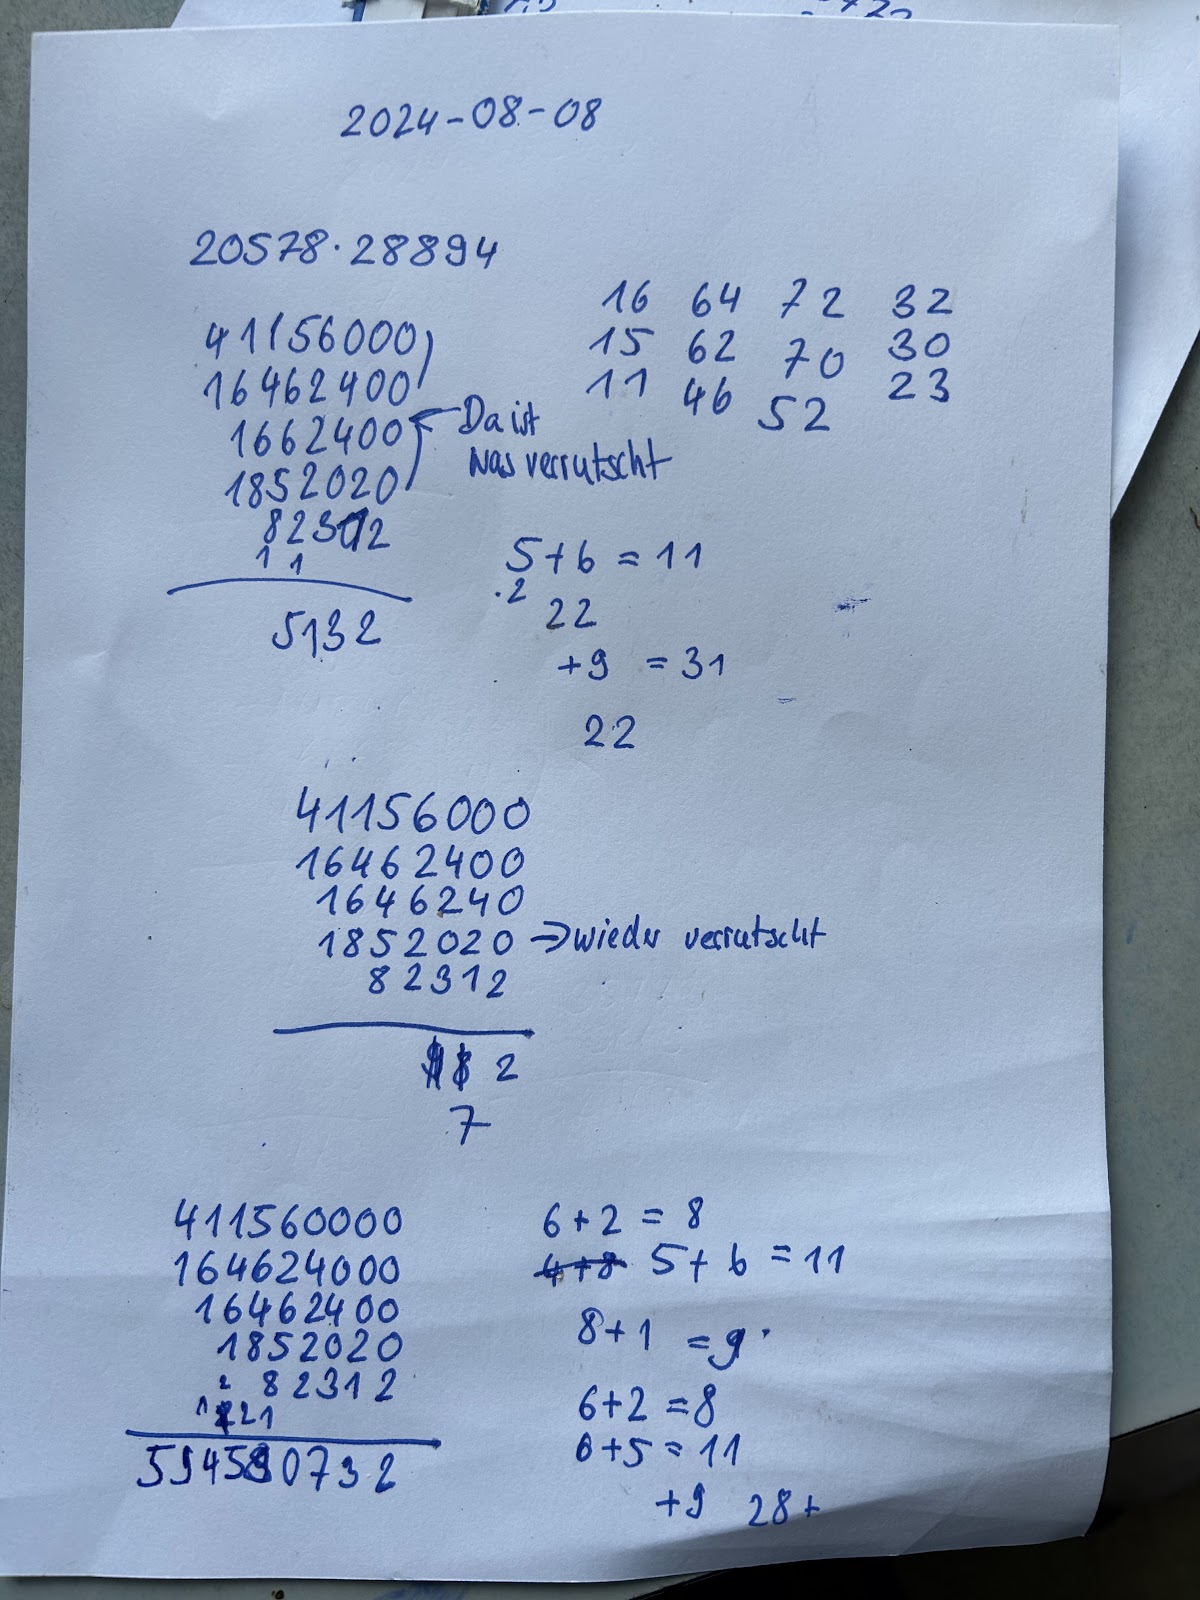 2024-08-08
20578·28894
16 64 72 32
15 62 70 30
11 46 52 23
41156000
16462400
1662400 Da ist
1852020 was verrutscht
82312
1 1
5132
5+6 = 11
·2
22
+9 = 31
22
41156000
16462400
1646240
1852020 → wieder verrutscht
82312
2
7
411560000
164624000
16462400
1852020
2 82312
1 21
594580732
6+2 = 8
4+8 5+6 = 11
8+1 = 9
6+2 = 8
6+5 = 11
+9 28+